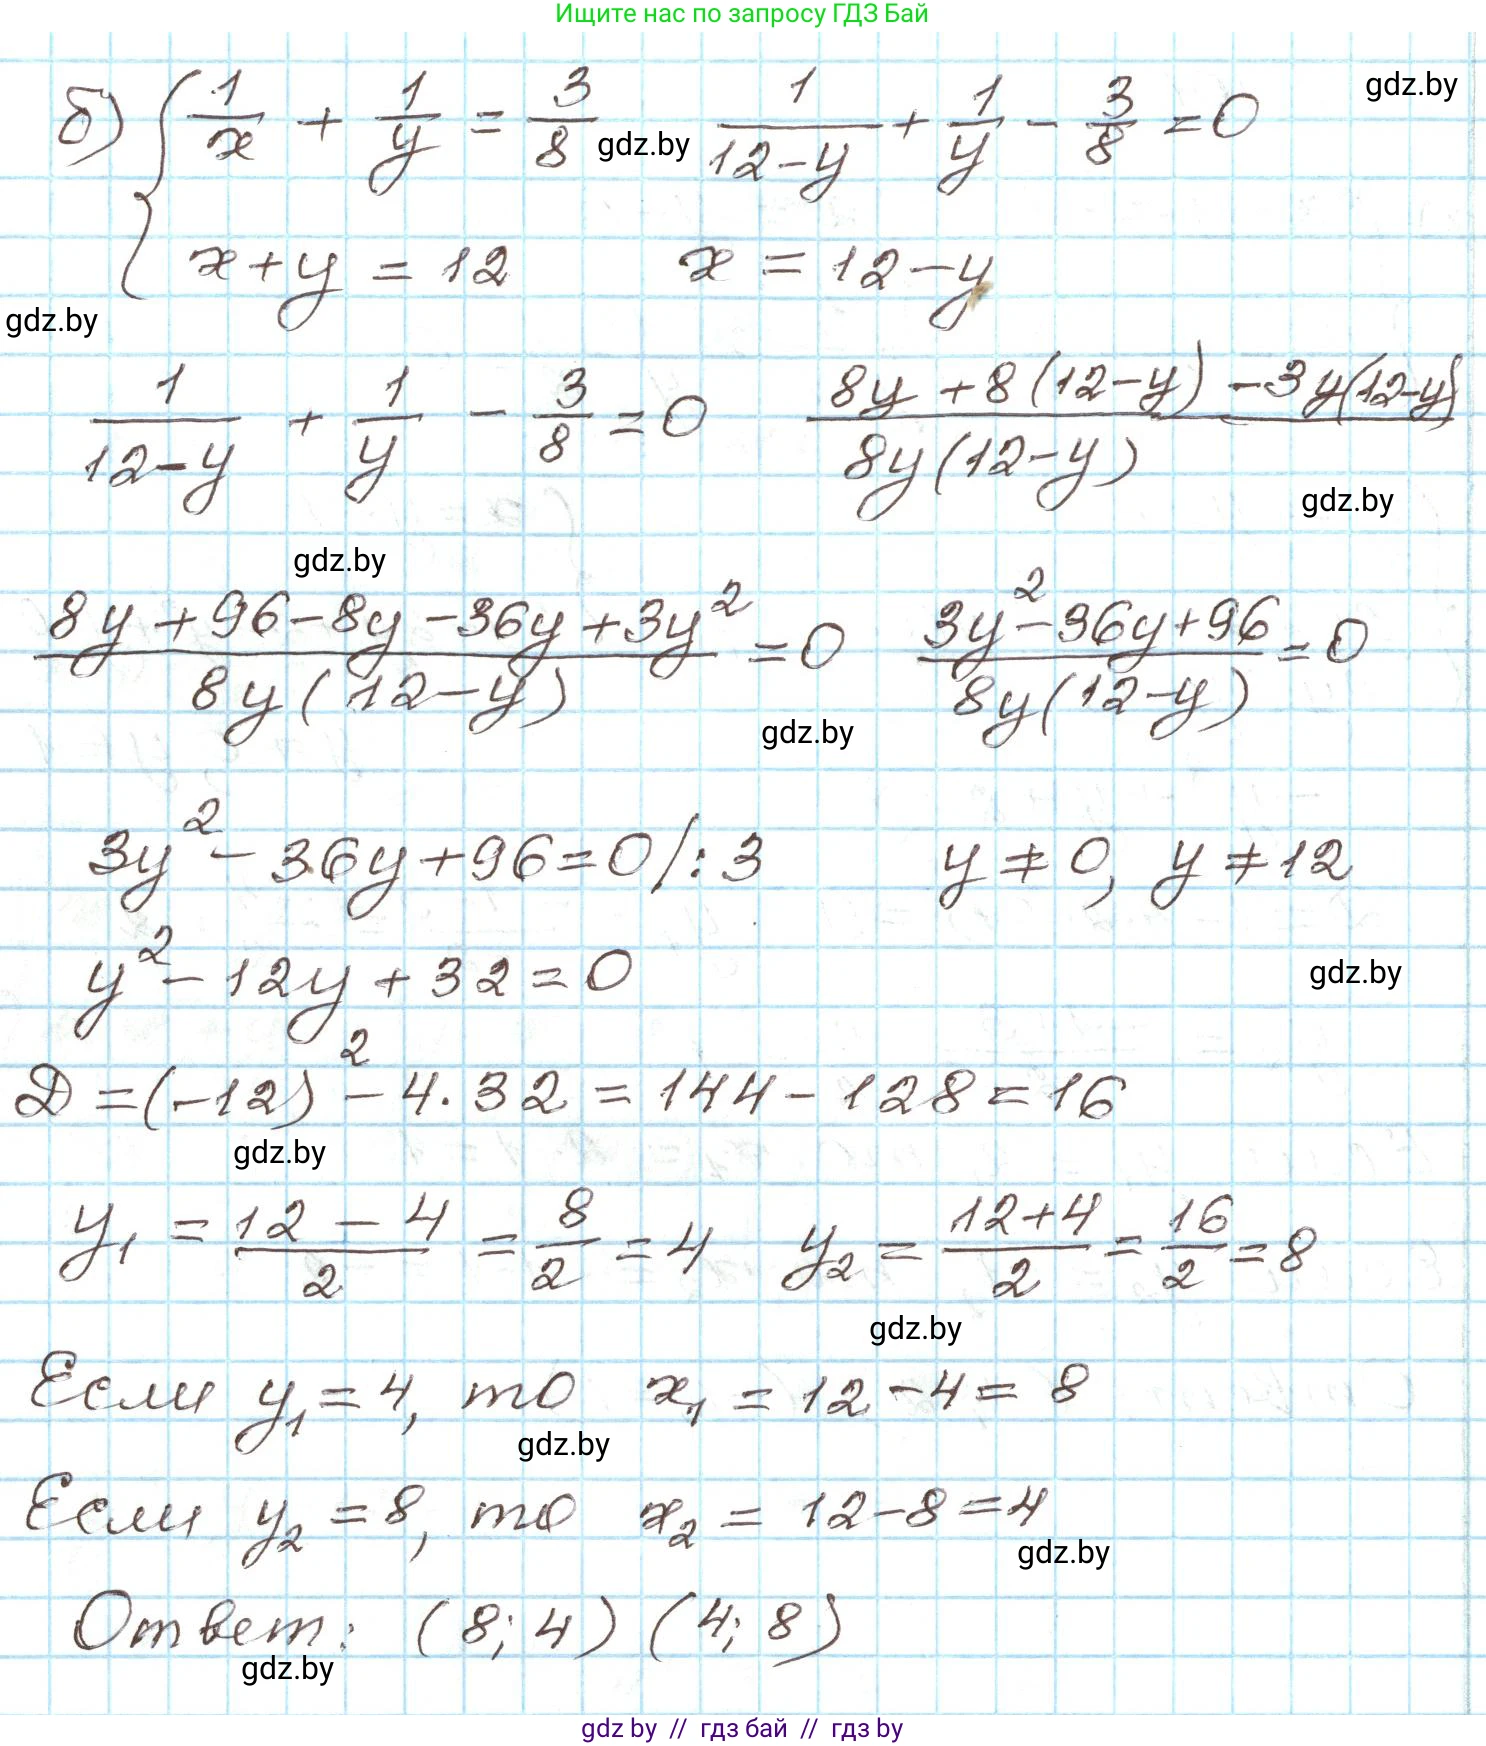 Ищите нас по запросу ГДЗ Бай
б) { 1/x + 1/y = 3/8   1/(12-y) + 1/y - 3/8 = 0
gdz.by
gdz.by
x + y = 12   x = 12 - y
gdz.by
1/(12-y) + 1/y - 3/8 = 0   (8y + 8(12-y) - 3y(12-y))/(8y(12-y))
gdz.by
gdz.by
(8y + 96 - 8y - 36y + 3y²)/(8y(12-y)) = 0   (3y² - 36y + 96)/(8y(12-y)) = 0
gdz.by
3y² - 36y + 96 = 0 /:3   y ≠ 0, y ≠ 12
y² - 12y + 32 = 0
gdz.by
D = (-12)² - 4·32 = 144 - 128 = 16
gdz.by
y₁ = (12 - 4)/2 = 8/2 = 4   y₂ = (12+4)/2 = 16/2 = 8
gdz.by
Если y₁ = 4, то x₁ = 12 - 4 = 8
gdz.by
Если y₂ = 8, то x₂ = 12 - 8 = 4
gdz.by
Ответ: (8; 4) (4; 8)
gdz.by
gdz by // гдз бай // гдз by